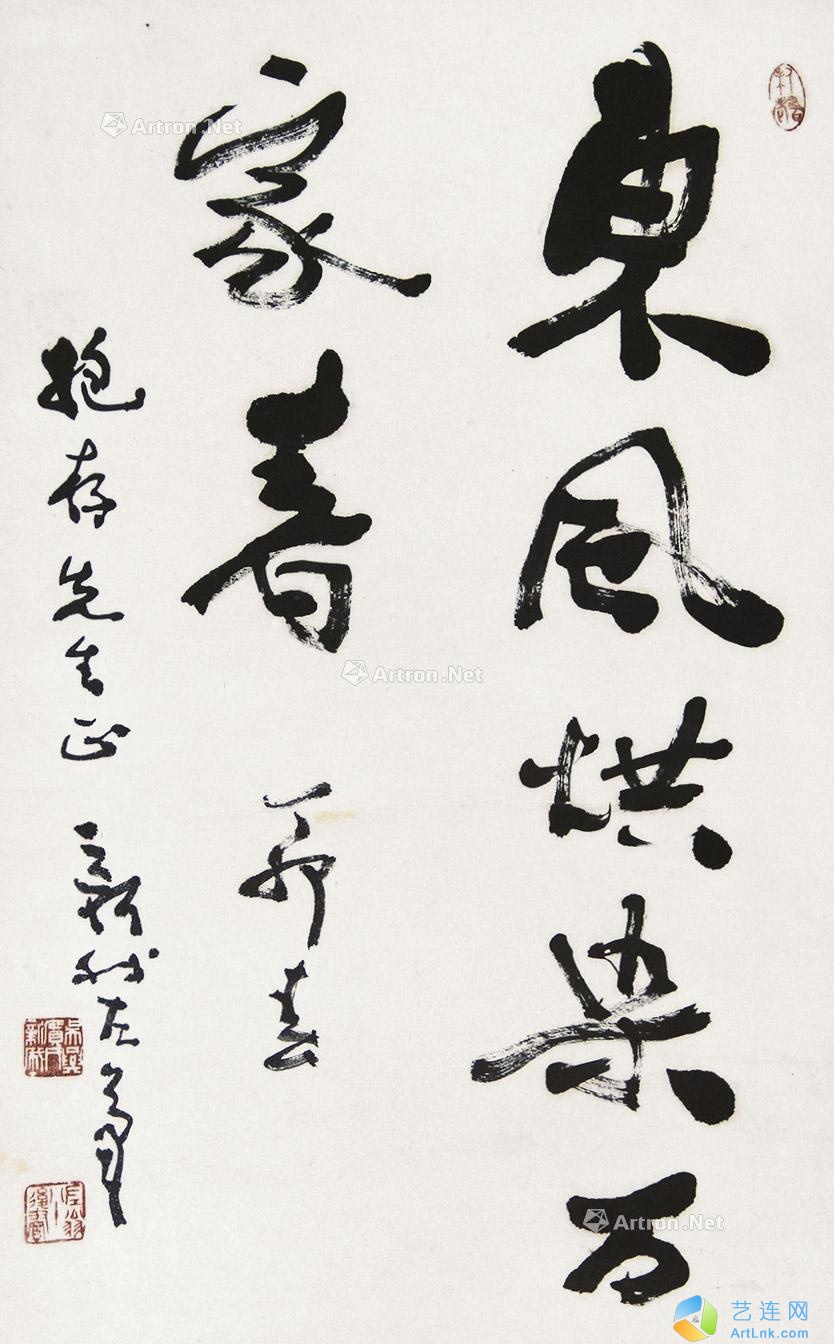 東風烘染万
家春
丁卯春
抱存先生正 新我左筆
Artron.Net
Artron.Net
Artron.Net
艺连网
ArtLnk.com